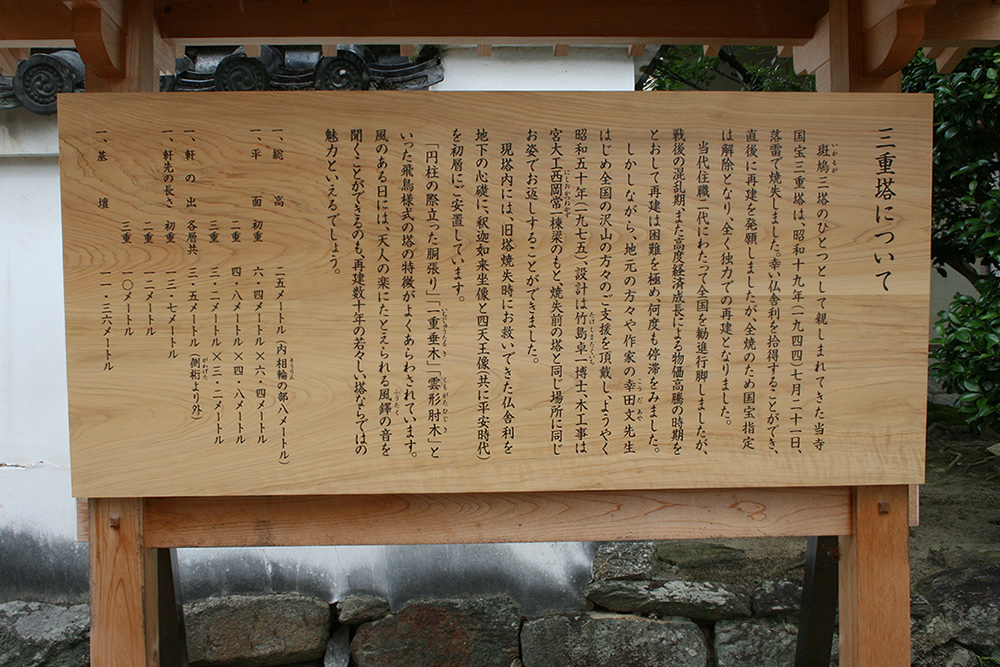 三重塔について
斑鳩三塔のひとつとして親しまれてきた当寺
国宝三重塔は、昭和十九年(一九四四)七月二十一日、
落雷で焼失しました。幸い仏舎利を拾得することができ、
直後に再建を発願しましたが、全焼のため国宝指定
は解除となり、全く独力での再建となりました。
当代住職二代にわたって全国を勧進行脚しましたが、
戦後の混乱期また高度経済成長による物価高騰の時期を
とおして再建は困難を極め、何度も停滞をみました。
しかしながら、地元の方々や作家の幸田文先生
はじめ全国の沢山の方々のご支援を頂戴し、ようやく
昭和五十年(一九七五)、設計は竹島卓一博士、木工事は
宮大工西岡常一棟梁のもと、焼失前の塔と同じ場所に同じ
お姿でお返しすることができました。
現塔内には、旧塔焼失時にお救いできた仏舎利を
地下の心礎に、釈迦如来坐像と四天王像(共に平安時代)
を初層にご安置しています。
「円柱の際立った胴張り」「一重垂木」「雲形肘木」と
いった飛鳥様式の塔の特徴がよくあらわされています。
風のある日には、天人の楽にたとえられる風鐸の音を
聞くことができるのも、再建数十年の若々しい塔ならではの
魅力といえるでしょう。
一、総高 二五メートル(内相輪の部八メートル)
一、平面 初重 六・四メートル×六・四メートル
二重 四・八メートル×四・八メートル
三重 三・二メートル×三・二メートル
一、軒の出 各層共 三・五メートル(側桁より外)
一、軒先の長さ 初重 一三・七メートル
二重 一二メートル
三重 一〇メートル
一、基壇 一一・三六メートル